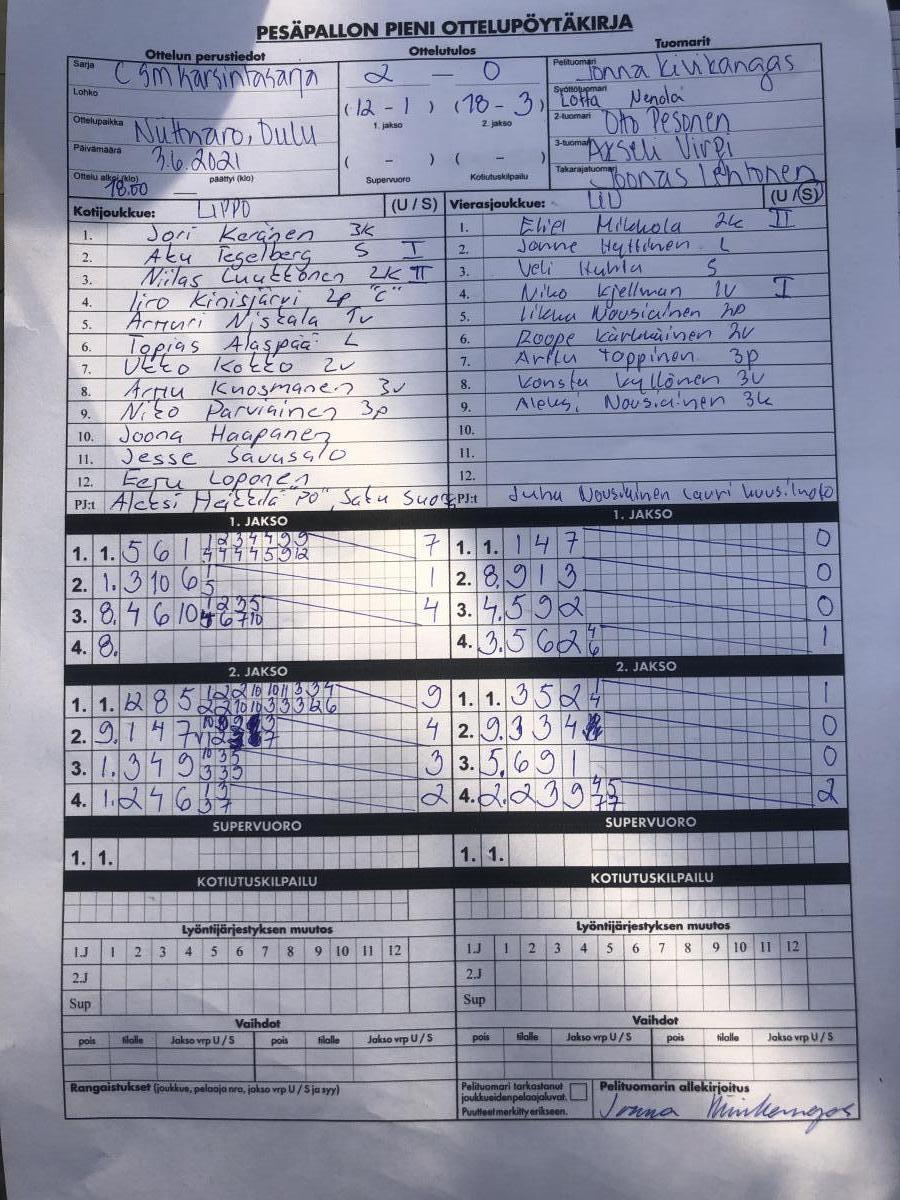 PESÄPALLON PIENI OTTELUPÖYTÄKIRJA
Ottelun perustiedot
Ottelutulos
Tuomarit
Sarja C SM karsintasarja
2 — 0
Pelituomari Jonna Kivikangas
Lohko
Syöttötuomari Lotta Nenola
(12 - 1) (18 - 3)
1. jakso 2. jakso
Ottelupaikka Nuttnaro, Oulu
2-tuomari Otto Pesonen
Päivämäärä 3.6.2021
3-tuomari Akseli Virpi
( - ) ( - )
Supervuoro Kotiutuskilpailu
Ottelu alkoi (klo) 18.00 päättyi (klo)
Takarajatuomari Joonas Lehtonen
Kotijoukkue: LIPPO (U / S)
Vierasjoukkue: (U / S)
1. Jori Keränen 3K
2. Aku Tegelberg S I
3. Niilas Luuttonen 2K II
4. Iiro Kinisjärvi 2p "C"
5. Artturi Niskala 1v
6. Topias Alaspää L
7. Ukko Kokko 2v
8. Arttu Knosmanen 3v
9. Niko Parviainen 3p
10. Joona Haapanen
11. Jesse Savusalo
12. Eeru Loponen
PJ:t Aleksi Heikkilä "PO", Satu
1. Eliel Mikkola 2k II
2. Janne Hyttinen L
3. Veli Huhta S
4. Niko Kjellman 1v I
5. Iikka Nousiainen 2p
6. Roope Kärkkäinen 2v
7. Arttu Toppinen 3p
8. Konsta Kyllönen 3v
9. Aleksi Nousiainen 3k
10.
11.
12.
PJ:t Juha Nousiainen Lauri
1. JAKSO
1. 1. 5 6 1 7
2. 1. 3 10 6 1
3. 8. 4 6 10 4
4. 8.
1. JAKSO
1. 1. 1 4 7 0
2. 8. 9 1 3 0
3. 4. 5 9 2 0
4. 3. 5 6 2 4 6 1
2. JAKSO
1. 1. 12 8 5 9
2. 9. 1 4 7 4
3. 1. 3 4 9 10 3 5 3 3 5 3
4. 1. 2 4 6 1 3 3 7 2
2. JAKSO
1. 1. 3 5 2 1 4 1
2. 9. 3 3 4 0
3. 5. 6 9 1 0
4. 2. 2 3 9 4 5 7 7 2
SUPERVUORO
1. 1.
SUPERVUORO
1. 1.
KOTIUTUSKILPAILU
KOTIUTUSKILPAILU
Lyöntijärjestyksen muutos
1.J 1 2 3 4 5 6 7 8 9 10 11 12
2.J
Sup
Lyöntijärjestyksen muutos
1.J 1 2 3 4 5 6 7 8 9 10 11 12
2.J
Sup
Vaihdot
pois tilalle Jakso vrp U / S pois tilalle Jakso vrp U / S
Vaihdot
pois tilalle Jakso vrp U / S pois tilalle Jakso vrp U / S
Rangaistukset (joukkue, pelaaja nro, jakso vrp U / S ja syy)
Pelituomari tarkastanut
joukkueiden pelaajaluvat.
Puutteet merkitty erikseen.
Pelituomarin allekirjoitus
Jonna